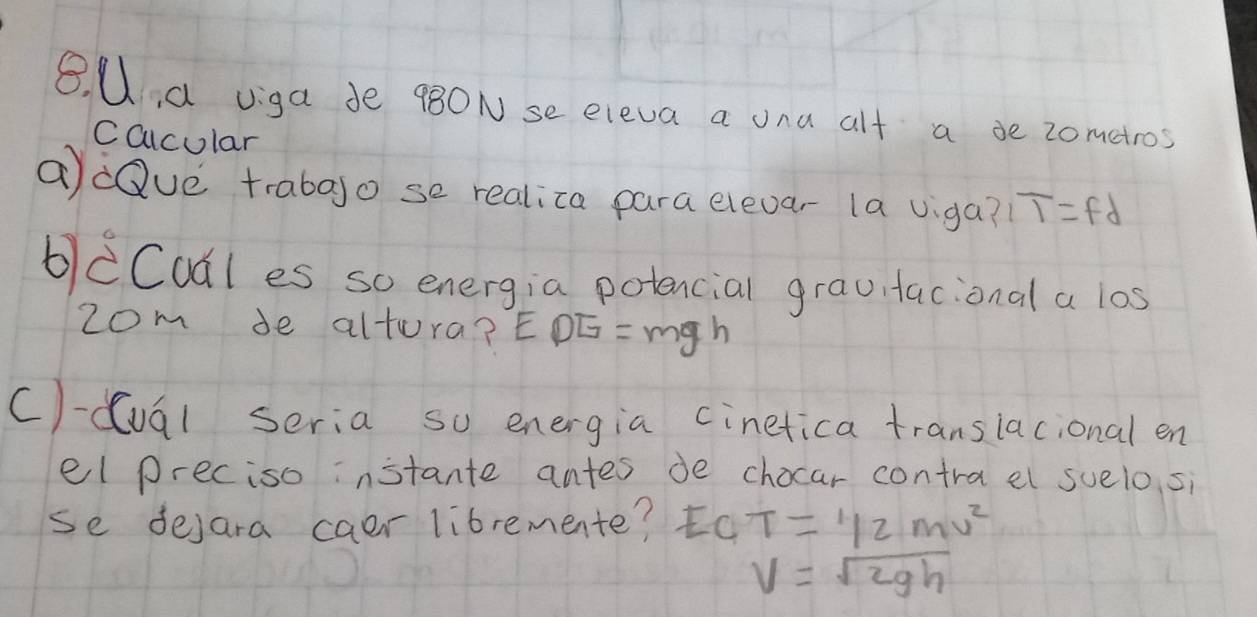 8. Una viga de 980N se eleva a una alt a de 20 metros
Calcular
a) ¿Qué trabajo se realiza para elevar la viga? T=fd
b) ¿Cuál es so energia potencial gravitacional a los
20m de altura? EPG = mgh
c)-¿Cuál seria su energia cinetica translacional en
el preciso instante antes de chocar contra el suelo, si
se dejara caer libremente? ECT = 1/2 mv²
V = √2gh